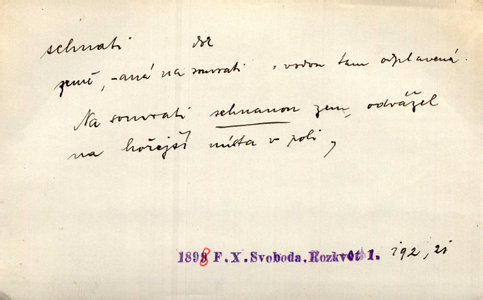 sehnati dok
země, -aná na souvrati, vodou tam odplavená.
Na souvrati sehnanou zem, odvážel
na hořejší místa v poli,
1898 F. X. Svoboda, Rozkvět 1. 192, 21